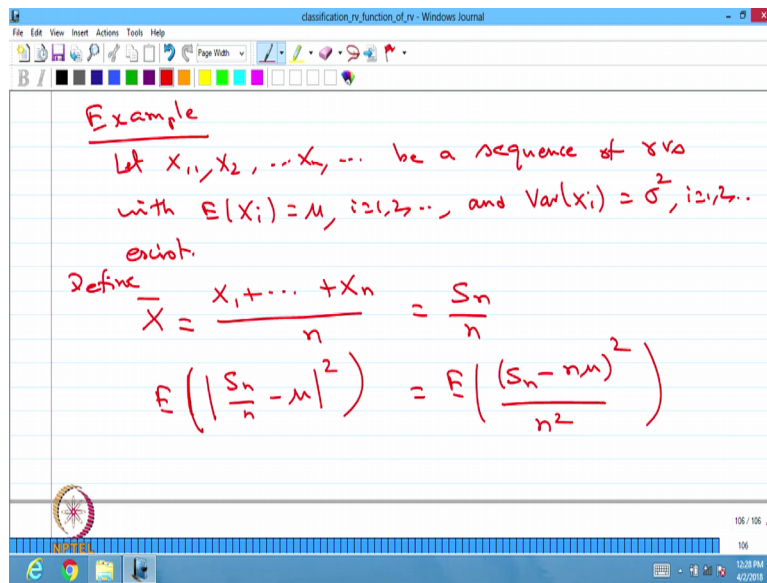 classification_rv_function_of_rv - Windows Journal
File Edit View Insert Actions Tools Help
Page Width
B I
Example
Let X₁, X₂, ... Xₙ, ... be a sequence of rvs
with E(Xi) = μ, i=1,2,..., and Var(Xi) = σ², i=1,2...
exist.
Define
X̄ = (X₁ + ... + Xn)/n = Sn/n
E(|Sn/n - μ|²) = E((Sn - nμ)²/n²)
106 / 106
NPTEL
106
12:28 PM
4/2/2018